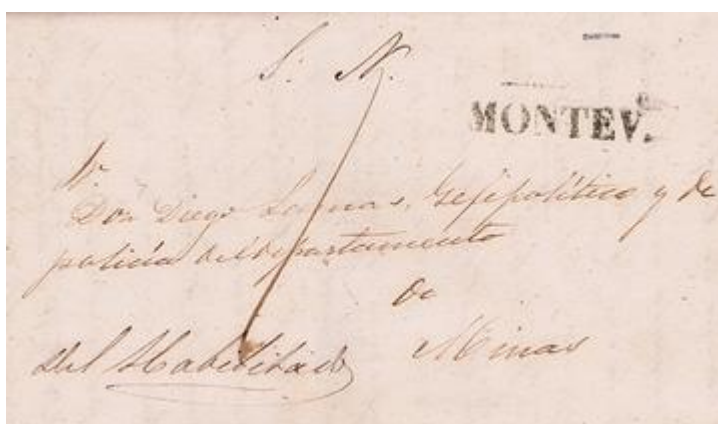 S. N.
MONTEV.
Sr.
Don Diego Lamas, Gefe político y de
policía del departamento
de
Minas
Del Habilitado